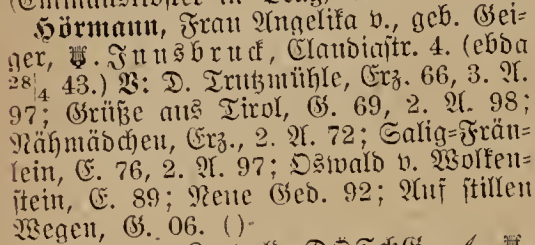 Hörmann, Frau Angelika v., geb. Gei=
ger, Innsbruck, Claudiastr. 4. (ebda
28|4 43.) V: D. Trutzmühle, Erz. 66, 3. A.
97; Grüße aus Tirol, G. 69, 2. A. 98;
Nähmädchen, Erz., 2. A. 72; Salig=Fräu=
lein, E. 76, 2. A. 97; Oswald v. Wolken=
stein, E. 89; Neue Ged. 92; Auf stillen
Wegen, G. 06. ()